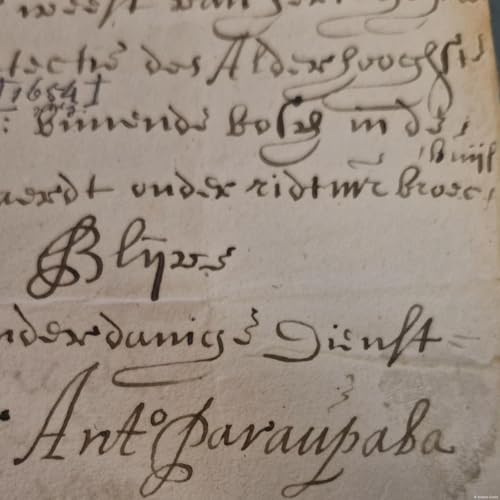 weest van
tectie des Alderhoochste
[1654]
: Binnende bosch in de
huijs
aerdt onder ridtmr broec
Blijve
nderdanige Dienst=
Anto Paraupaba